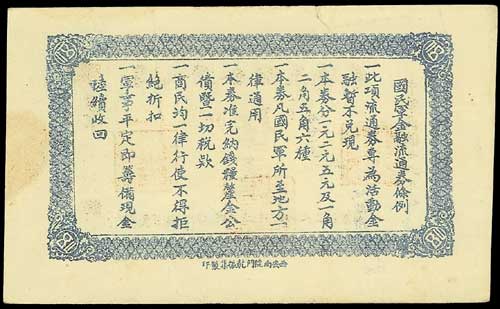 國民軍金融流通券條例
一此項流通券專為活動金
融暫不兌現
一本券分一元二元五元及一角
二角五角六種
一本券凡國民軍所至地方一
律通用
一本券准完納錢糧釐金公
債暨一切稅欵
一商民均一律行使不得拒
絶折扣
一軍事平定即籌備現金
陸續收回
西安南院門
製印